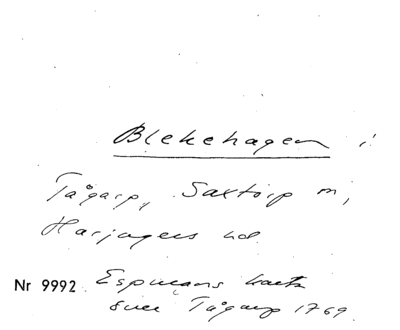 Blekehagen i
Tågarp, Saxtorp sn,
Harjagers hd.
Nr 9992 Espmans karta
över Tågarp 1769.